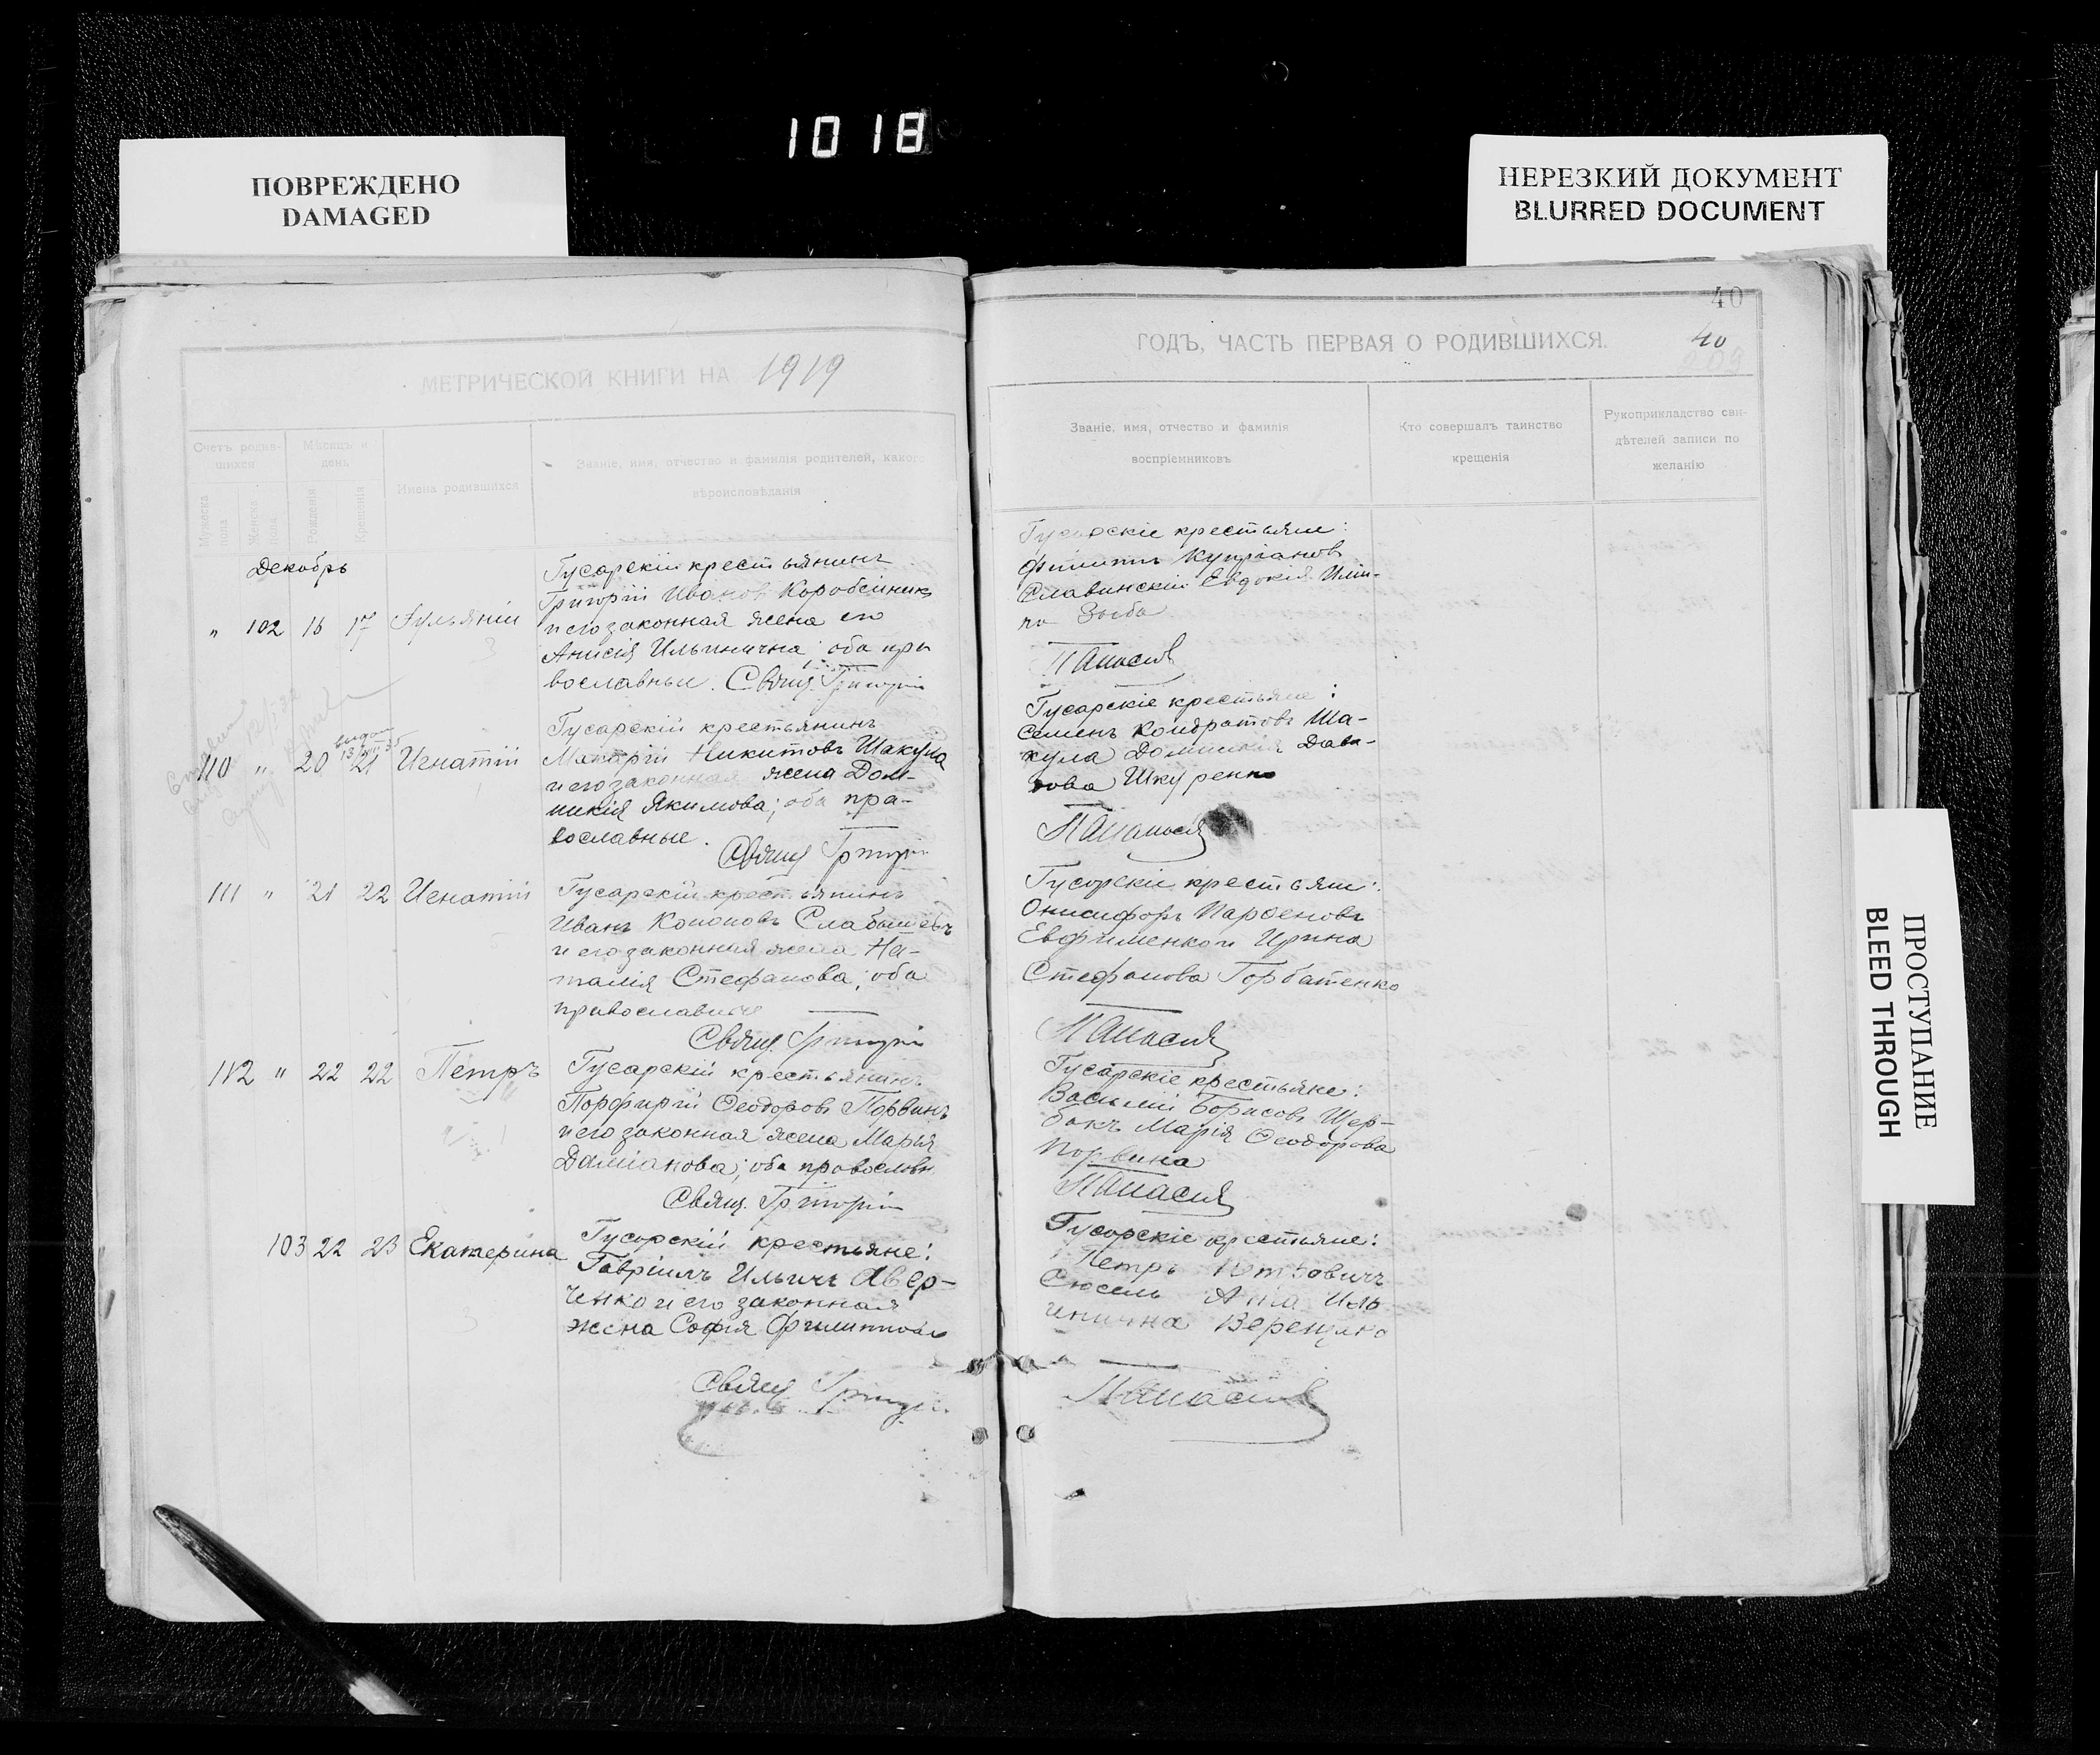 1018
ПОВРЕЖДЕНО
DAMAGED
НЕРЕЗКИЙ ДОКУМЕНТ
BLURRED DOCUMENT
МЕТРИЧЕСКОЙ КНИГИ НА 1919
Счетъ родив-
шихся
Мѣсяцъ и
день
Мужеска
пола
Женска
пола
Рожденія
Крещенія
Имена родившихся
Званіе, имя, отчество и фамилія родителей, какого
вѣроисповѣданія
Декабрь
" 102 16 17 Іуліянія
Гусарскій крестьянинъ
Григорій Иванов Коробейникъ
и его законная жена его
Анисія Ильинична; оба пра
вославные. Свящ. Григорій
110 " 20 21 Игнатій
Гусарскій крестьянинъ
Никитовъ Шакула
и его законная жена Дом-
никія Якимова; оба пра-
вославные.
Свящ Григорій
111 " 21 22 Игнатій
Гусарскій крестьянинъ
Иванъ Кононовъ
и его законная жена На-
талія Стефанова; оба
православные
Свящ. Григорій
112 " 22 22 Петръ
Гусарскій крестьянинъ
Порфирій Ѳеодоровъ Порвинъ
и его законная жена Марья
Даміанова; оба православн.
Свящ. Григорій
103 22 23 Екатерина
Гусарскій крестьяне:
Гавріилъ Ильичъ Авер-
ченко и его законная
жена Софія Филиппова
Свящ Григорій
40
ГОДЪ, ЧАСТЬ ПЕРВАЯ О РОДИВШИХСЯ.
40
Званіе, имя, отчество и фамилія
воспріемниковъ
Кто совершалъ таинство
крещенія
Рукоприкладство сви-
дѣтелей записи по
желанію
Гусарскіе крестьяне:
Филиппъ Купріановъ
Славинскій Евдокія Ильи-
на Зыба
Гусарскіе крестьяне:
Семенъ Кондратовъ Ша-
кула Домникія Давы-
дова Шкуренко
Гусарскіе крестьяне:
Онисифоръ Парѳеновъ
Евфименко и Ирина
Стефанова Горбатенко
Гусарскіе крестьяне:
Василій Борисовъ Щер-
бакъ Марія Ѳеодорова
Порвина
Гусарскіе крестьяне:
Петръ Петровичъ
Анна Иль
инична Верещака
ПРОСТУПАНИЕ
BLEED THROUGH